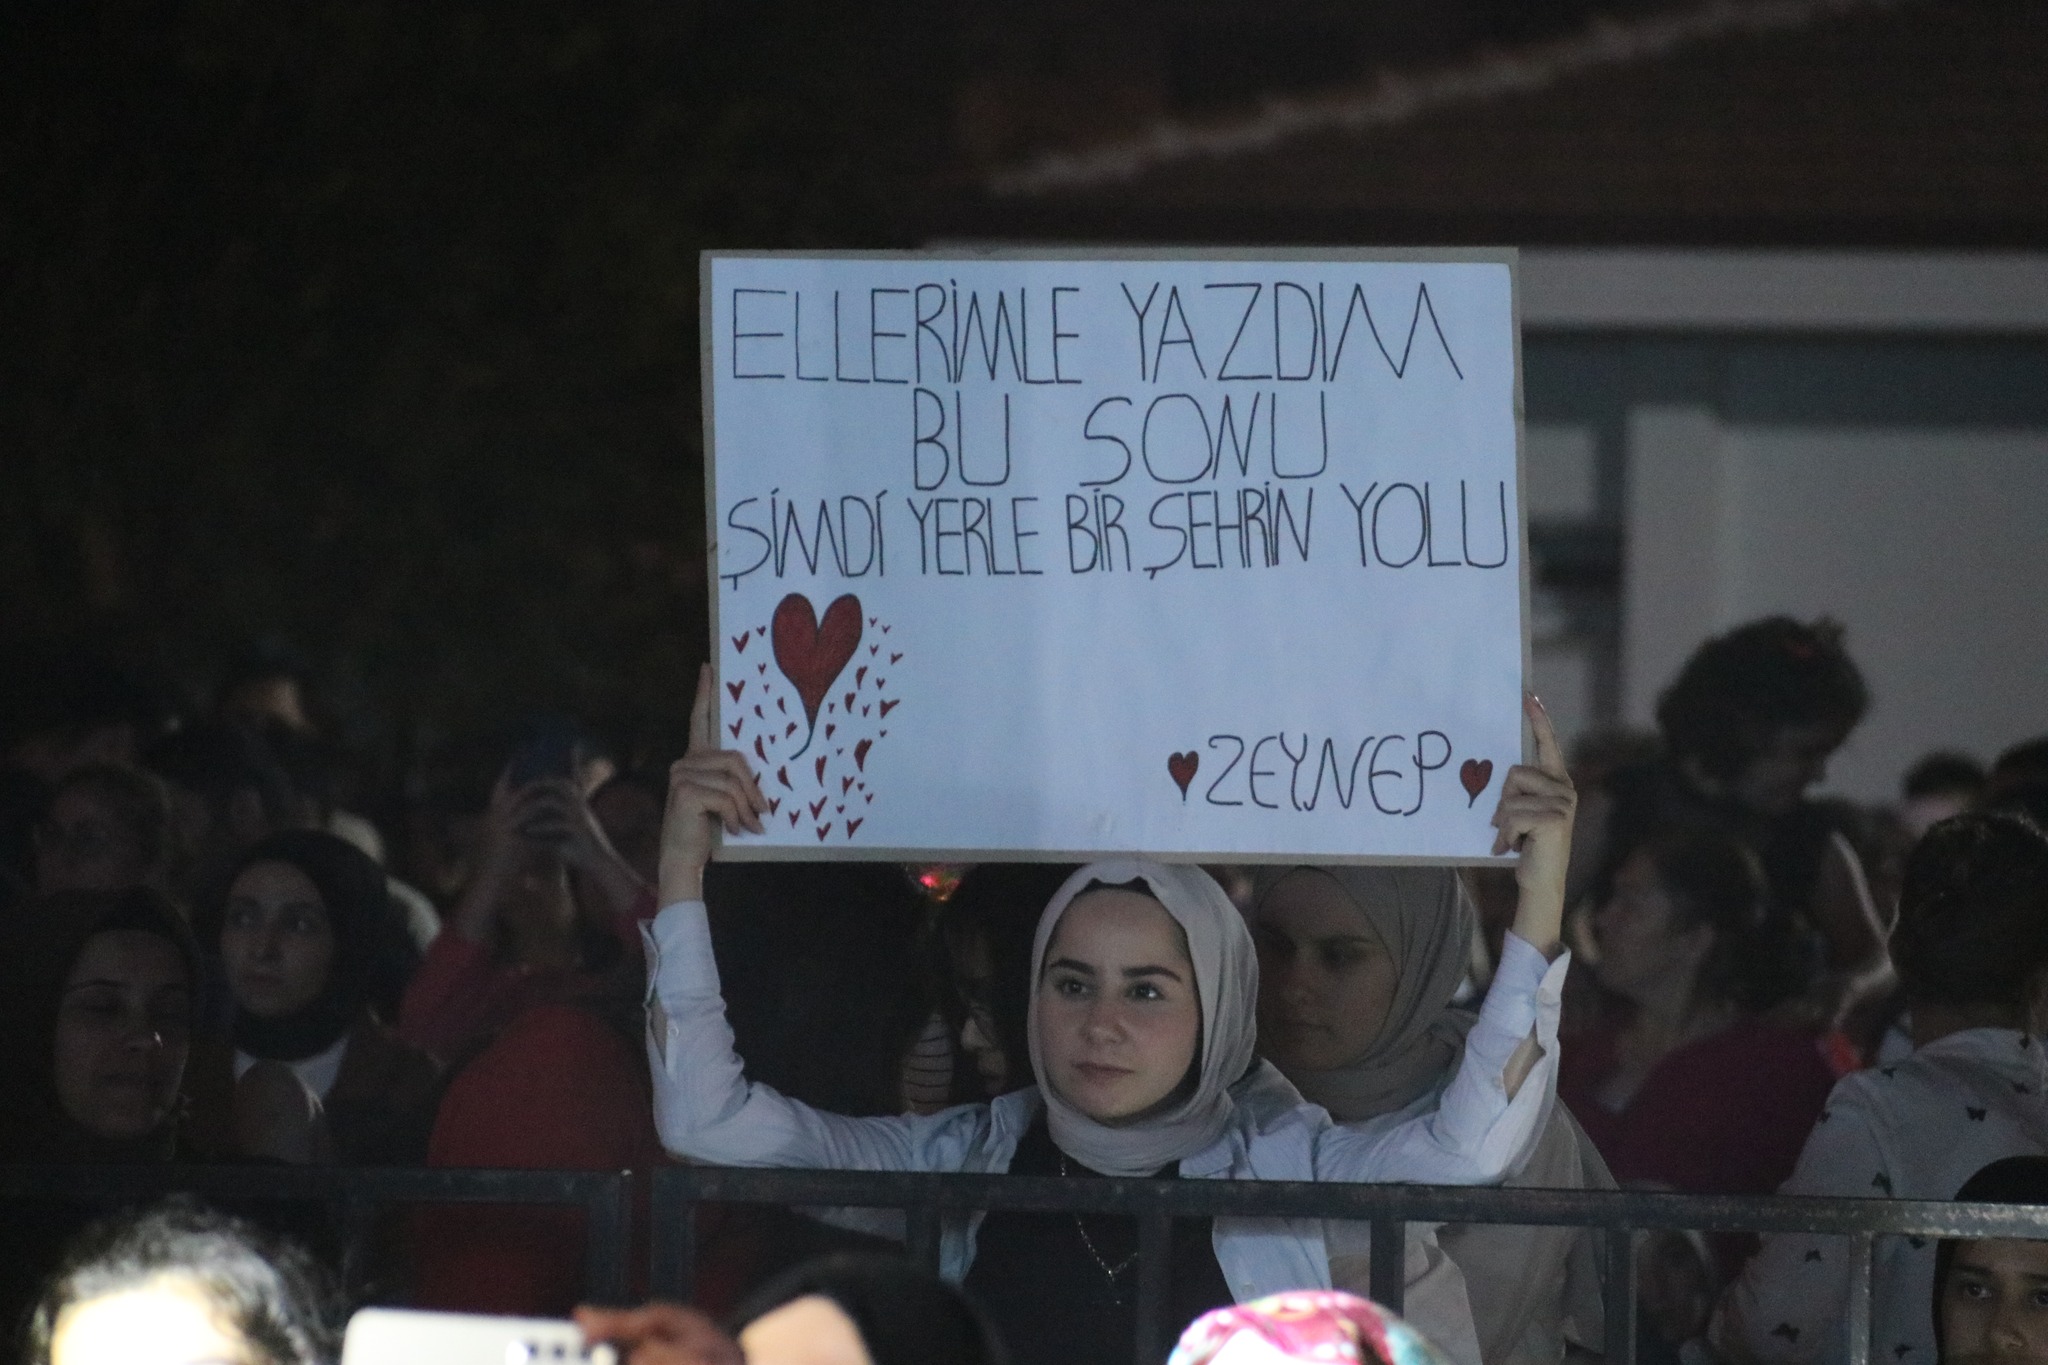 ELLERİMLE YAZDIM
BU SONU
ŞİMDİ YERLE BİR ŞEHRİN YOLU
ZEYNEP